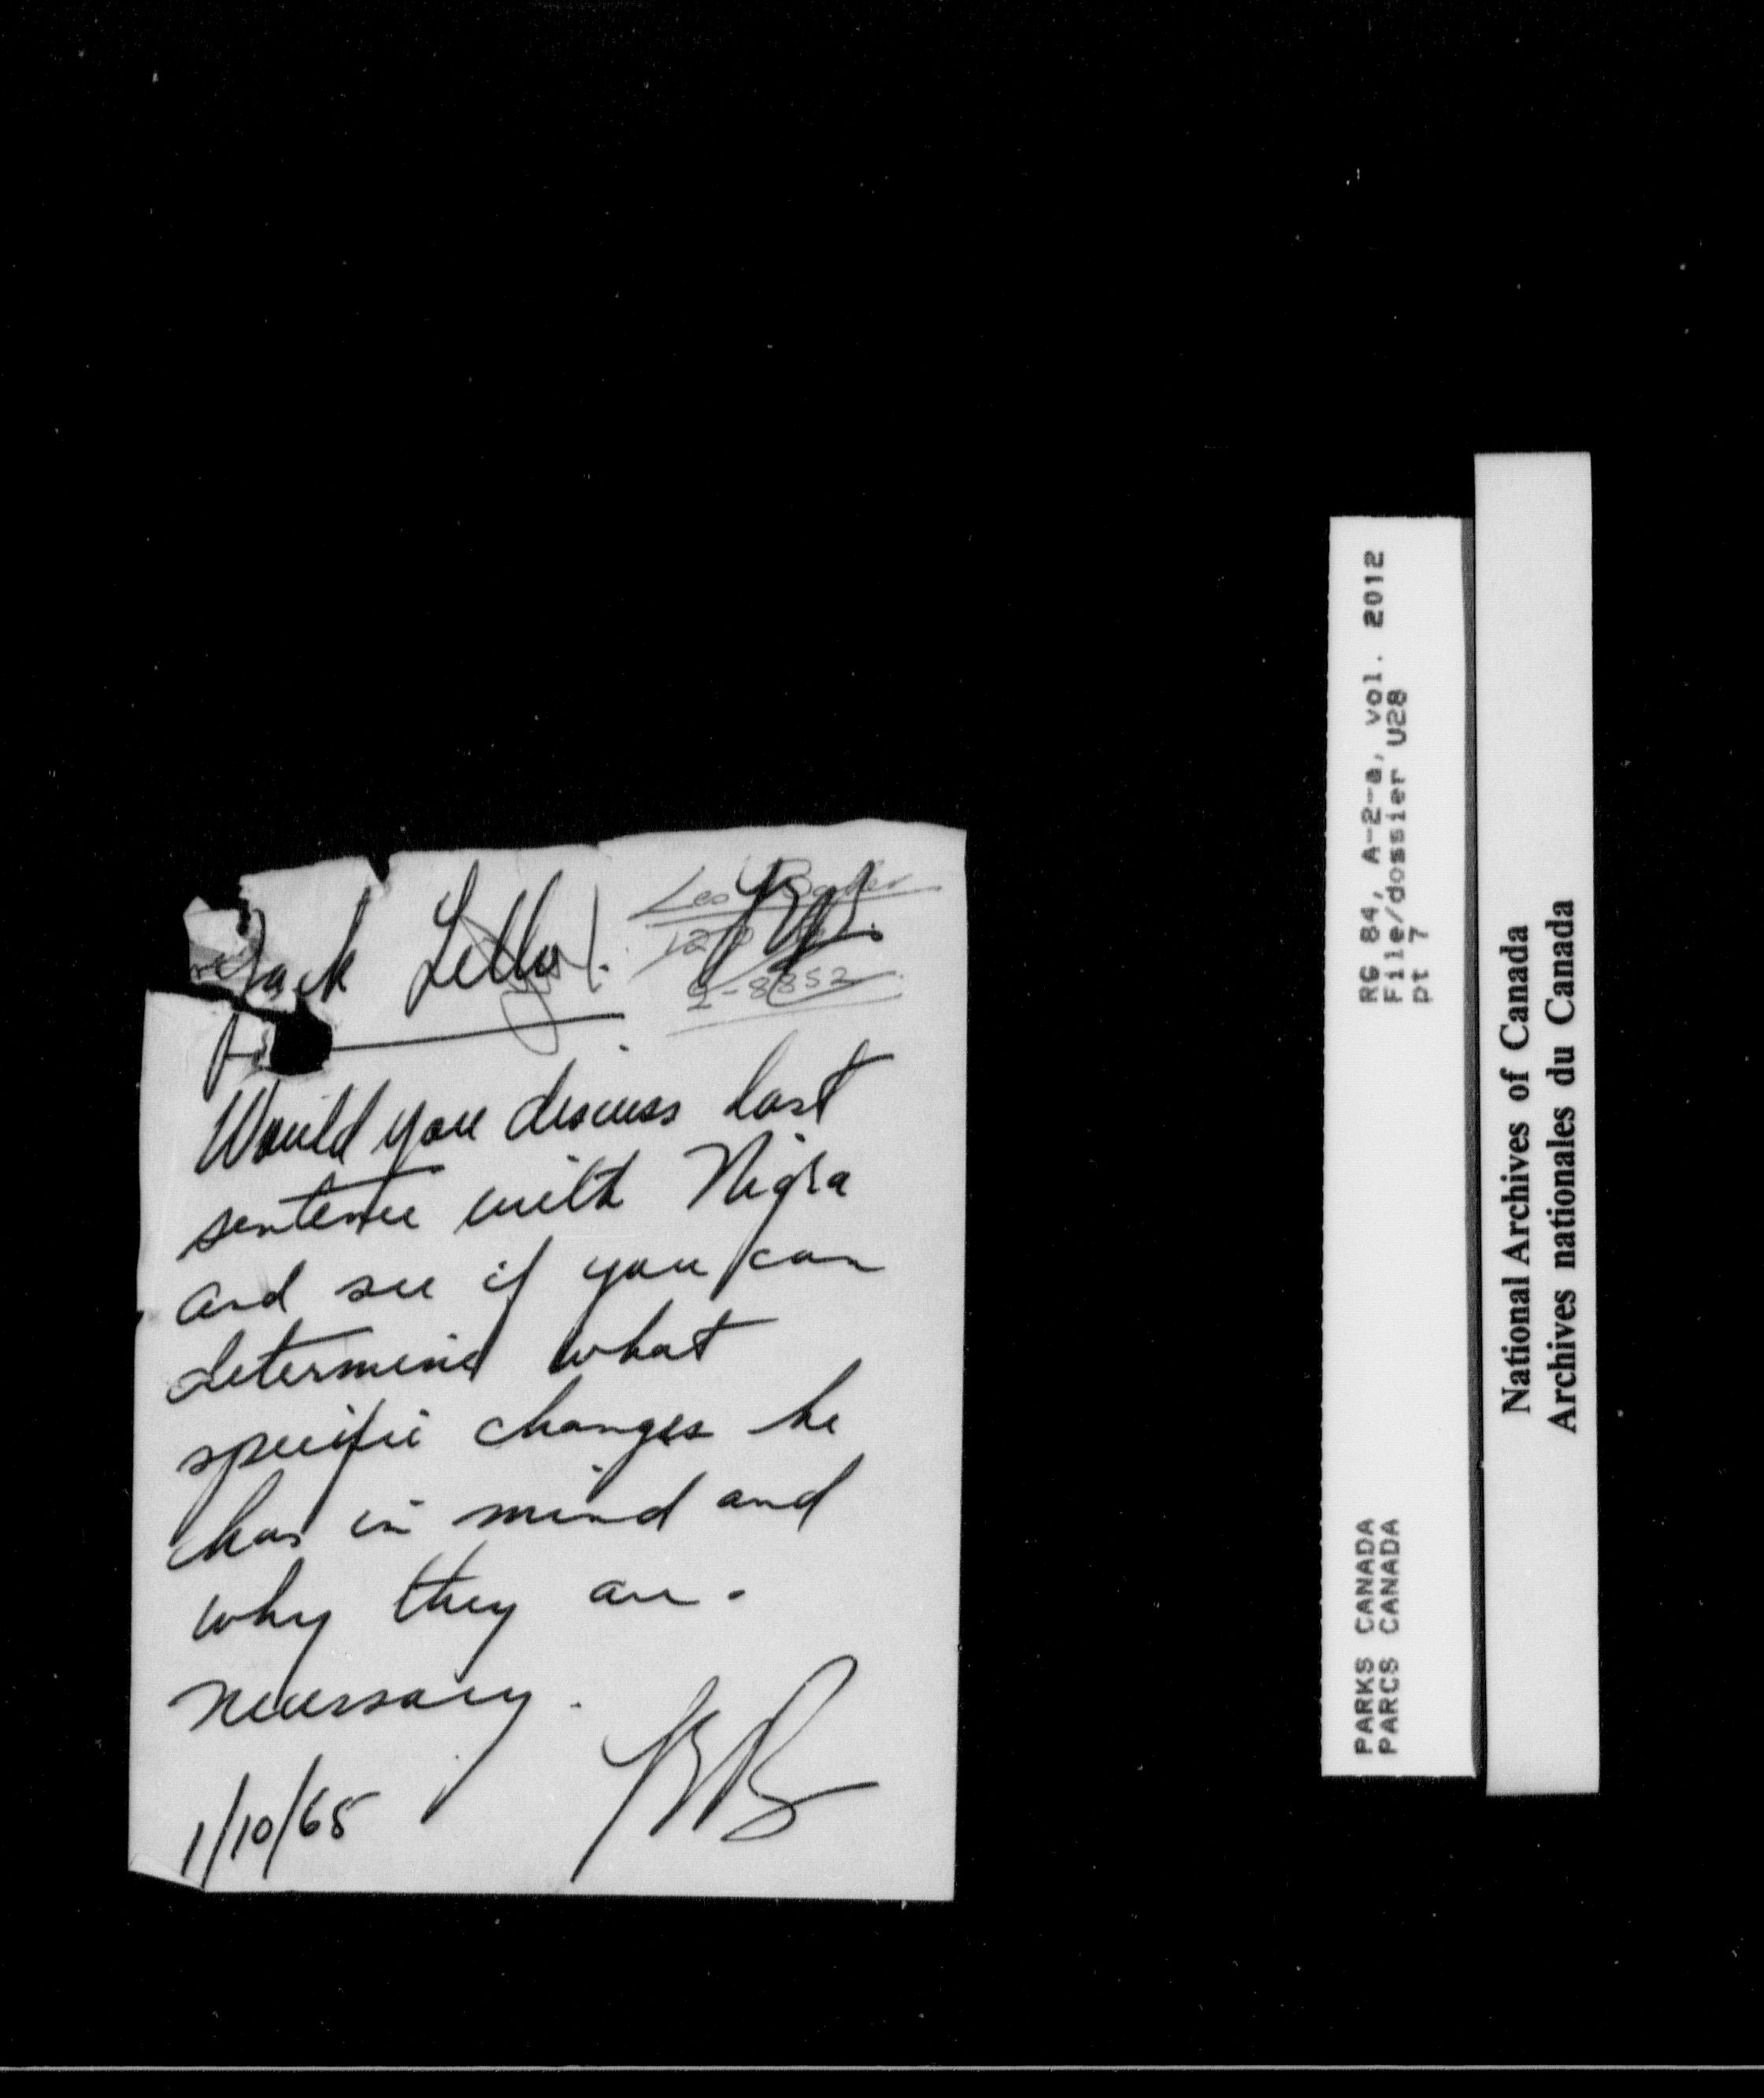 Jack
Would you discuss last
sentence with Nigra
and see if you can
determine what
specific changes he
has in mind and
why they are
necessary.
1/10/65
RG 84, A-2-a, vol. 2012
File/dossier U28
pt 7
PARKS CANADA
PARCS CANADA
National Archives of Canada
Archives nationales du Canada